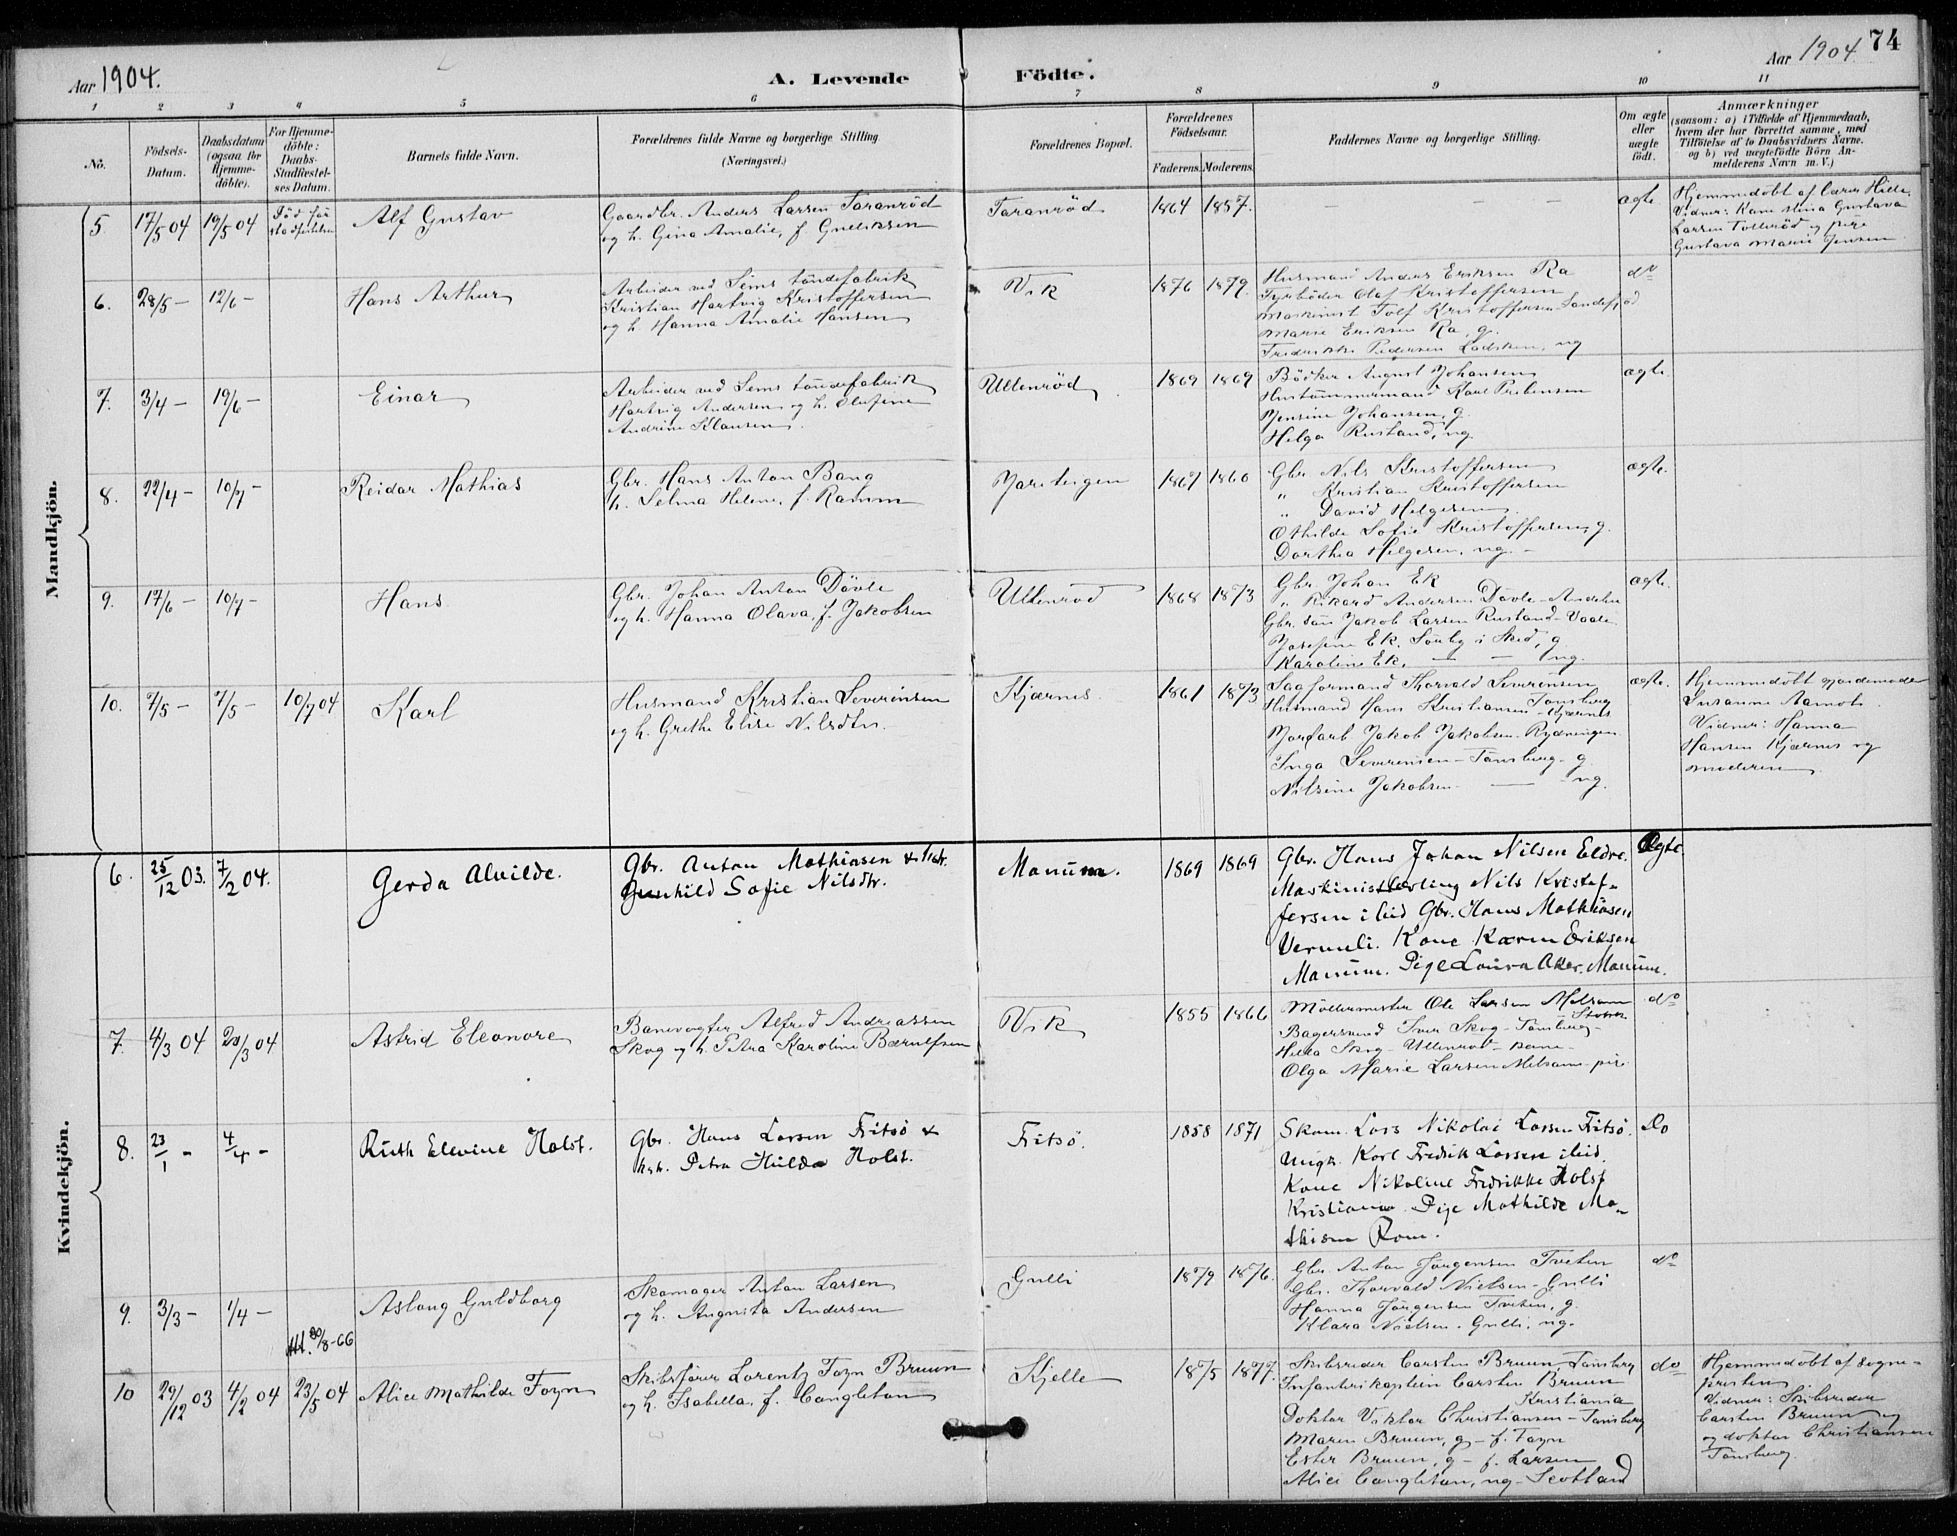 74
Aar 1904.
A. Levende Födte.
Aar 1904
1 2 3 4 5 6 7 8 9 10 11
No.
Födsels-Datum.
Daabsdatum (ogsaa for Hjemme-döbte).
For Hjemme-döbte: Daabs-Stadfæstel-ses Datum.
Barnets fulde Navn.
Forældrenes fulde Navne og borgerlige Stilling
(Næringsvei.)
Forældrenes Bopæl.
Forældrenes Födselsaar.
Faderens. Moderens.
Faddernes Navne og borgerlige Stilling.
Om ægte eller uægte født.
Anmærkninger
(saasom: a) i Tilfælde af Hjemmedaab,
hvem der har forrettet samme, med
Tilföielse af to Daabsvidners Navne.
og b) ved uægtefödte Börn An-
melderens Navn m. V.)
Mandkjön.
5 17/5 04 19/5 04 Död før stadfæstelsen Alf Gustav
Gaardbr. Anders Larsen Taranröd
og h. Gina Amalie, f. Gulliksen
Taranröd 1864 1857. — — — ægte
Hjemmedöbt af lærer Hille.
Vidner: Kone Mina Gustava
Larsen Tolleröd og pige
Gustava Marie Jensen
6. 28/5 — 12/6 — Hans Arthur
Arbeider ved Sems töndefabrik
Kristian Hartvig Kristoffersen
og h. Hanna Amalie Hansen
Vik 1876 1879.
Husmand Anders Eriksen Ra
Fyrböder Olaf Kristoffersen
Maskinist Tolf Kristoffersen Sandefjord
Marie Eriksen Ra, g.
Fredrikke Pedersen, ug
do
7. 3/4 — 19/6 — Einar
Arbeider ved Sems töndefabrik
Hartvig Andersen og h. Olufine
Andrine Klausen.
Ullenröd 1869 1869
Bödker August Johansen
Hustömmermand Karl Prebensen
Jensine Johansen, g.
Helga Rustand, ug.
ægte.
8. 22/4 — 10/7 — Reidar Mathias
Gbr. Hans Anton Bang
h. Selma Helene, f. Ramm
Jarlteigen 1867 1860
Gbr. Nils Kristoffersen
" Kristian Kristoffersen
" David Helgesen.
Othilde Sofie Kristoffersen, g.
Dorthea Helgesen, ug. —
ægte.
9. 17/6 — 10/7 — Hans
Gbr. Johan Anton Dövle
og h. Hanna Olava, f. Jakobsen
Ullenröd 1868 1873
Gbr. Johan Ek
" Rikard Andersen Dövle —
Gbr. sön Jakob Larsen Rustand —
Josefine Ek. Sönby i Sked, g
Karoline Ek. — — ug.
ægte.
10. 7/5 — 7/5 — 10/7 04 Karl
Husmand Kristian Severinsen
og h. Grethe Elise Nilsdtr.
Kjærnes 1861 1873
Sagformand Thorvald Severinsen Tönsberg
Husmand Hans Kristiansen Kjærnes
Jordarb Jakob Jakobsen Rydningen
Inga Severinsen — Tönsberg — g.
Nilsine Jakobsen — — ug.
ægte.
Hjemmedöbt gjordemoder
Susanne Aamot.
Vidner: Hanna
Hansen Kjærnes og
moderen.
Kvindekjön.
6. 25/12 03. 7/2 04. Gerda Alvilde.
Gbr. Anton Mathiasen & Hstr.
Gunhild Sofie Nilsdtr.
Manum. 1869 1869
Gbr. Hans Johan Nilsen Eldre.
Maskinistlærling Nils Kristof-
fersen ibid Gbr. Hans Mathiasen
Vermeli. Kone Karen Eriksen
Manum. Pige Laura Aker. Manum.
Ægte
7. 4/3 04 20/3 04 Astrid Eleonore
Banevogter Alfred Andreassen
Skog og h. Petra Karoline Bærulfsen
Vik 1855 1866
Möllermester Ole Larsen Melsom
Bagersvend Iver Skog — Tönsberg —
Hilda Skog — Ullenröd — kone —
Olga Marie Larsen Melsom — pige
do
8. 23/1 — 4/4 — Ruth Elevine Holst.
Gbr. Hans Larsen Fritsö &
hst. Petra Hulda Holst.
Fritsö. 1858 1871
Skom. Lars Nikolai Larsen Fritsö.
Ungk. Karl Fredrik Larsen ibid.
Kone Nikoline Fredrikke Holst
Kristiania. Pige Mathilde Ma-
thisen Rom.
Do
9. 3/3 — 1/4 — Aslaug Guldborg
Att. 30/8-66
Skomager Anton Larsen
og h. Augusta Andersen
Gulli 1879 1876.
Gbr. Anton Jörgensen Tveten
Gbr. Thorvald Nielsen — Gulli
Hanna Jörgensen Tveten, g.
Klara Nielsen. Gulli, ug.
do
10 29/12 03 4/2 04 23/5 04 Alice Mathilde Foyn
Skibsförer Lorentz Foyn Bruun
og h. Isabella, f. Cangleton
Kjelle 1875 1877.
Skibsreder Carsten Bruun, Tönsberg
Infanterikaptein Carsten Bruun
Kristiania
Doktor Viktor Christiansen — Tönsberg
Maren Bruun, g — f. Foyn
Ester Bruun, g — f. Larsen
Alice Cangleton, ug — Scotland
do
Hjemmedöbt af sogne-
presten
Vidner: Skibsreder
Carsten Bruun
og doktor Christiansen
Tönsberg.